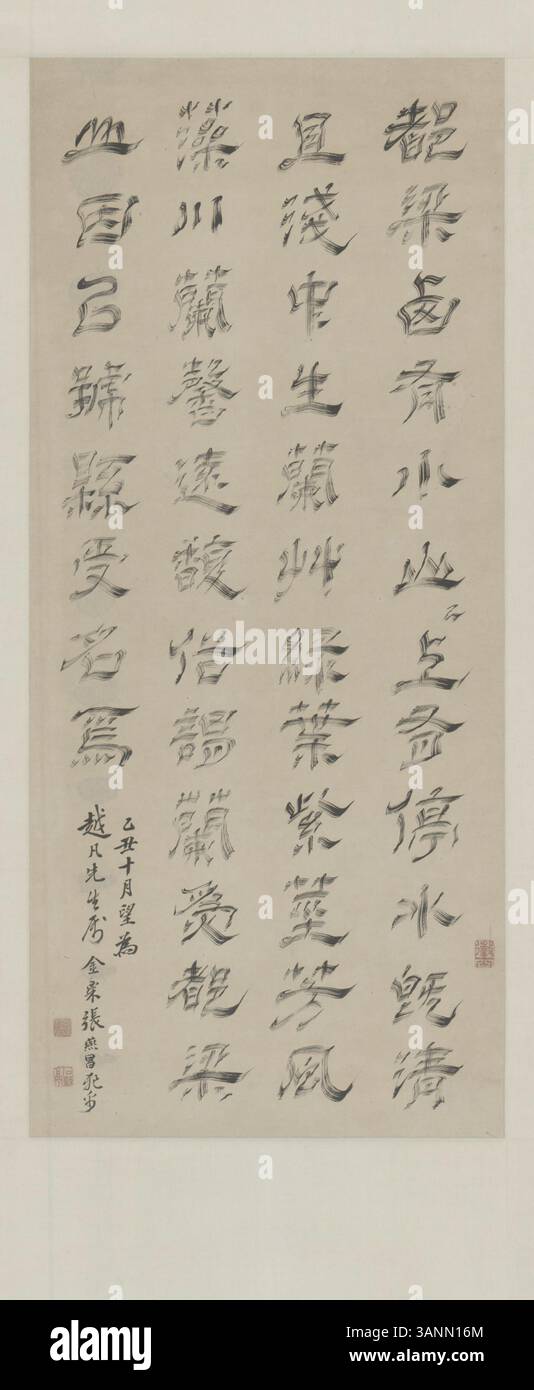 都梁卤有小山〻上有停水既清
且淺中生蘭艸綠葉紫莖芳風
藻川蘭馨遠馥俗謂蘭爲都梁
山因㠯號縣受名焉
乙丑十月望為
越凡先生属 金粟張燕昌飛帛
alamy
Image ID: 3ANN16M
www.alamy.com